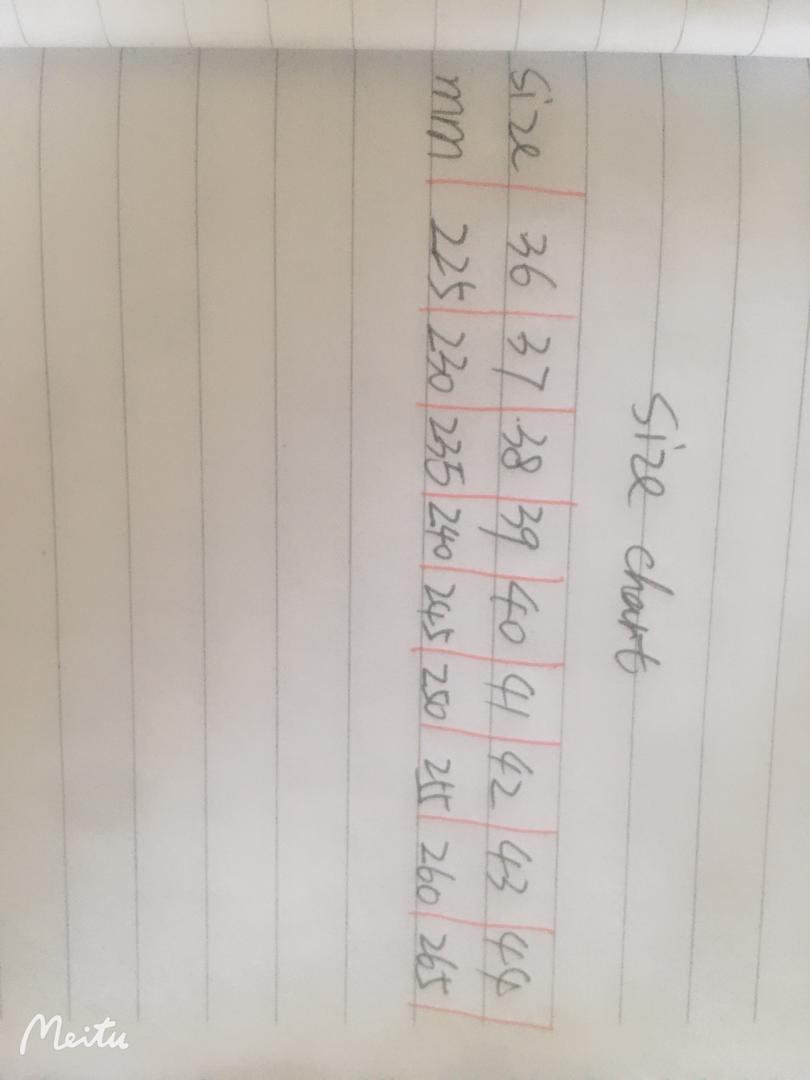 Size chart
Size 36 37 38 39 40 41 42 43 44
mm 225 230 235 240 245 250 255 260 265
Meitu